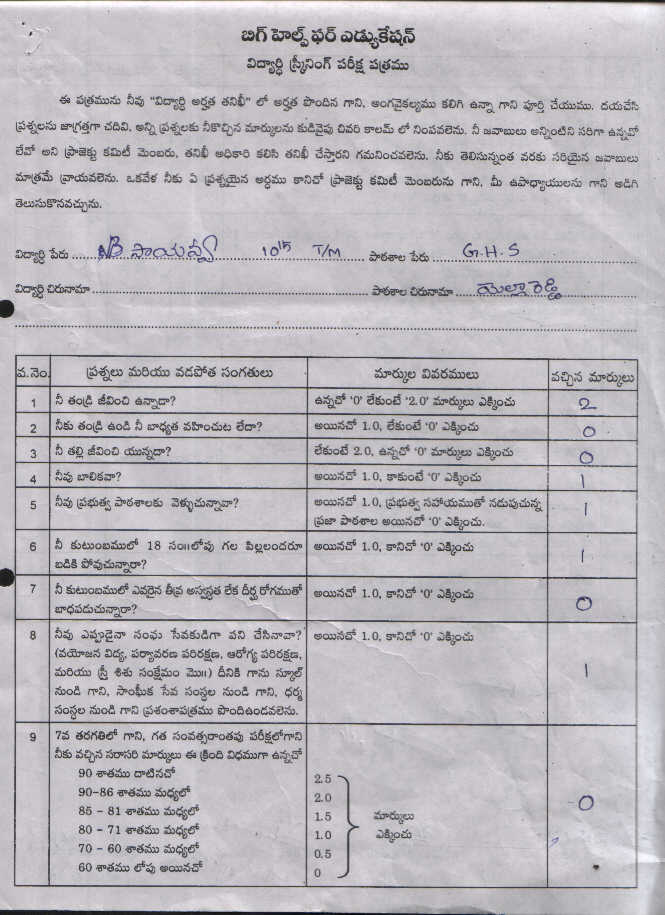 బిగ్ హెల్ప్ ఫర్ ఎడ్యుకేషన్
విద్యార్థి స్క్రీనింగ్ పరీక్ష పత్రము
ఈ పత్రమును నీవు "విద్యార్థి అర్హత తనిఖీ" లో అర్హత పొందిన గాని, అంగవైకల్యము కలిగి ఉన్నా గాని పూర్తి చేయుము. దయచేసి
ప్రశ్నలను జాగ్రత్తగా చదివి, అన్ని ప్రశ్నలకు నీకొచ్చిన మార్కులను కుడివైపు చివరి కాలమ్ లో నింపవలెను. నీ జవాబులు అన్నింటిని సరిగా ఉన్నవో
లేవో అని ప్రాజెక్టు కమిటీ మెంబరు, తనిఖీ అధికారి కలిసి తనిఖీ చేస్తారని గమనించవలెను. నీకు తెలిసున్నంత వరకు సరియైన జవాబులు
మాత్రమే వ్రాయవలెను. ఒకవేళ నీకు ఏ ప్రశ్నయైన అర్థము కానిచో ప్రాజెక్టు కమిటీ మెంబరును గాని, మీ ఉపాధ్యాయులను గాని అడిగి
తెలుసుకొనవచ్చును.
విద్యార్థి పేరు ..... B సాయవ్వ 10th T/M పాఠశాల పేరు ..... G.H.S
విద్యార్థి చిరునామా ..... పాఠశాల చిరునామా ..... యెల్లారెడ్డి
వ.నెం. ప్రశ్నలు మరియు వడపోత సంగతులు మార్కుల వివరములు వచ్చిన మార్కులు
1 నీ తండ్రి జీవించి ఉన్నాడా? ఉన్నచో '0' లేకుంటే '2.0' మార్కులు ఎక్కించు 2
2 నీకు తండ్రి ఉండి నీ బాధ్యత వహించుట లేదా? అయినచో 1.0, లేకుంటే '0' ఎక్కించు 0
3 నీ తల్లి జీవించి యున్నదా? లేకుంటే 2.0, ఉన్నచో '0' మార్కులు ఎక్కించు 0
4 నీవు బాలికవా? అయినచో 1.0, కాకుంటే '0' ఎక్కించు 1
5 నీవు ప్రభుత్వ పాఠశాలకు వెళ్ళుచున్నావా? అయినచో 1.0, ప్రభుత్వ సహాయముతో నడుపుచున్న 1
ప్రజా పాఠశాల అయినచో '0' ఎక్కించు.
6 నీ కుటుంబములో 18 సం॥లోపు గల పిల్లలందరూ అయినచో 1.0, కానిచో '0' ఎక్కించు 1
బడికి పోవుచున్నారా?
7 నీ కుటుంబములో ఎవరైన తీవ్ర అస్వస్థత లేక దీర్ఘ రోగముతో అయినచో 1.0, కానిచో '0' ఎక్కించు 0
బాధపడుచున్నారా?
8 నీవు ఎప్పుడైనా సంఘ సేవకుడిగా పని చేసినావా? అయినచో 1.0, కానిచో '0' ఎక్కించు 1
(వయోజన విద్య, పర్యావరణ పరిరక్షణ, ఆరోగ్య పరిరక్షణ,
మరియు స్త్రీ శిశు సంక్షేమం మొ॥) దీనికి గాను స్కూల్
నుండి గాని, సాంఘీక సేవ సంస్థల నుండి గాని, ధర్మ
సంస్థల నుండి గాని ప్రశంశాపత్రము పొందిఉండవలెను.
9 7వ తరగతిలో గాని, గత సంవత్సరాంతపు పరీక్షలోగాని 0
నీకు వచ్చిన సరాసరి మార్కులు ఈ క్రింది విధముగా ఉన్నచో
90 శాతము దాటినచో 2.5
90-86 శాతము మధ్యలో 2.0
85 - 81 శాతము మధ్యలో 1.5 మార్కులు
80 - 71 శాతము మధ్యలో 1.0 ఎక్కించు
70 - 60 శాతము మధ్యలో 0.5
60 శాతము లోపు అయినచో 0